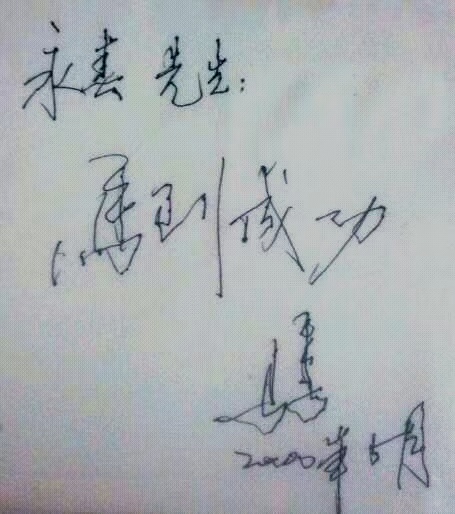 永春先生:
馬到成功
2000年5月